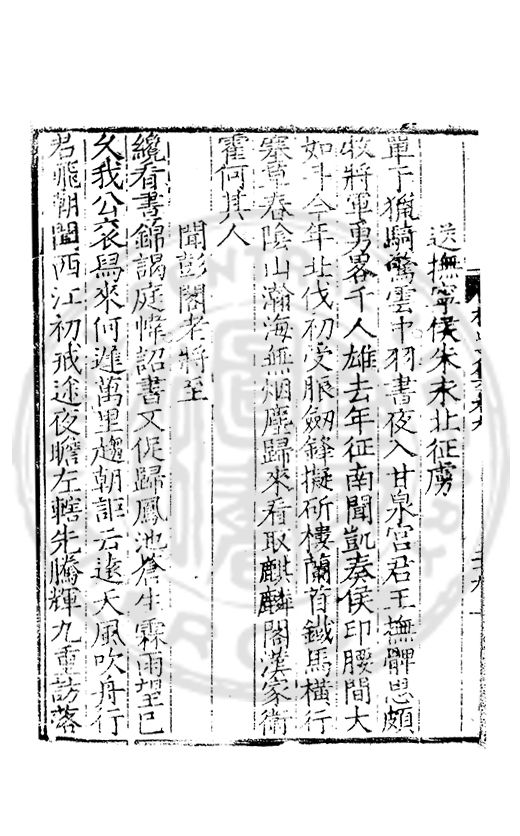 送撫寧侯朱永北征虜
單于獵騎驚雲中羽書夜入甘泉宮君王撫髀思頗
牧將軍勇畧千人雄去年征南聞凱奏侯印腰間大
如斗今年北伐初受脤劒鋒擬斫樓蘭首鐵馬橫行
塞草春陰山瀚海無烟塵歸來看取麒麟閣漢家衛
霍何其人
聞彭閣老將至
纔看晝錦謁庭幃詔書又促歸鳳池蒼生霖雨望已
久我公衮舄來何遲萬里趨朝詎云遠天風吹舟行
若飛朝聞西江初戒途夜瞻左轄先騰輝九重訪落